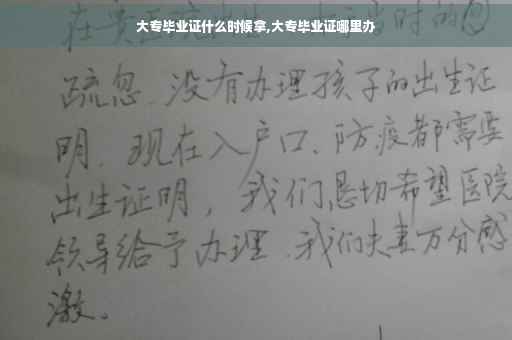 大专毕业证什么时候拿,大专毕业证哪里办
在贵医院出生，当时的
疏忽、没有办理孩子的出生证
明、现在入户口、防疫都需要
出生证明，我们恳切希望医院
领导给予办理、我们夫妻万分感
激。